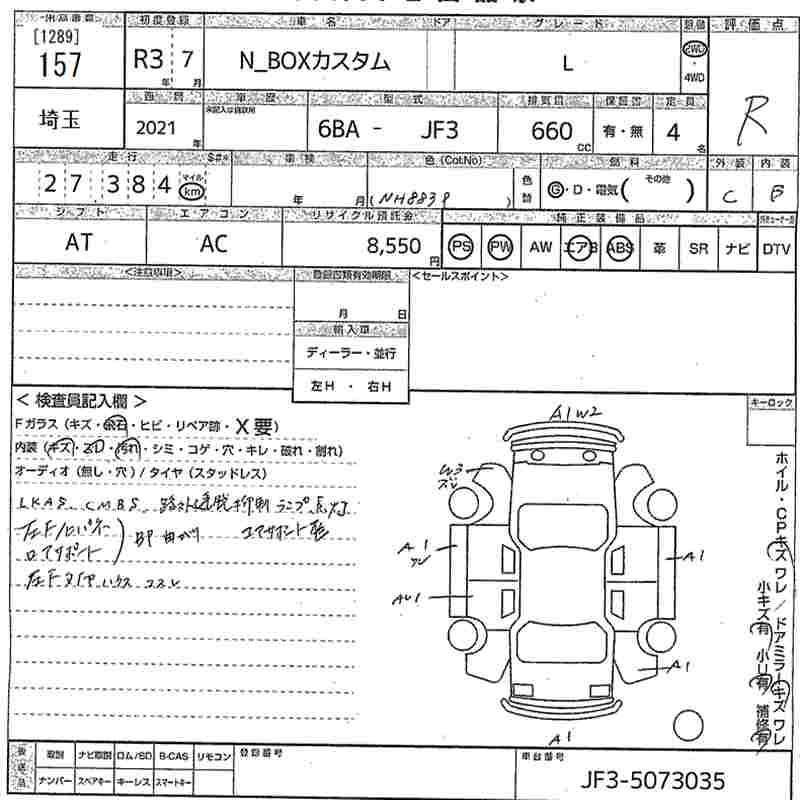 初度登録 車 名 ドア グレード 評価点
[1289]
157 R3年 7月 N_BOXカスタム L 2WD・4WD R
埼玉 2021年 型式 6BA - JF3 排気量 660cc 有・無 定員 4名
走行 車検 色(Col.No) 燃料 外装 内装
27,384 マイル km 年 月 (NH883P) 色替 G・D・電気( その他 ) C B
シフト エアコン リサイクル預託金 純正装備品
AT AC 8,550円 PS PW AW エアB ABS 革 SR ナビ DTV
<注意事項> 登録書類有効期限 <セールスポイント>
月 日
輸入車
ディーラー・並行
左H ・ 右H
< 検査員記入欄 >
キーロック
Fガラス (キズ・飛石・ヒビ・リペア跡・X要)
内装 (キズ・スレ・汚れ・シミ・コゲ・穴・キレ・破れ・割れ)
オーディオ (無し・穴) / タイヤ (スタッドレス)
LKAS CMBS 路外逸脱抑制 ランプ点灯
BP曲がり
A1W2
W3
A1
A1
AU1
A1
A1
ホイル・CPキズ ワレ / ドアミラーキズ ワレ
小キズ有 小U有 補修有
後送品 取説 ナビ取説 ロム/SD B-CAS リモコン 登録番号 車台番号
ナンバー スペアキー キーレス スマートキー
JF3-5073035